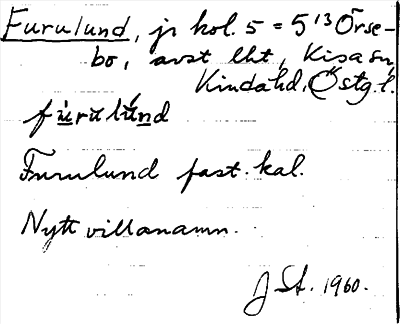 Furulund, jr kol. 5 = 5¹³ Örse-
bo, avst lht, Kisa sn,
Kinda hd, Östg. l.
fùrulúnd
Furulund fast. kal.
Nytt villanamn.
J. St. 1960.